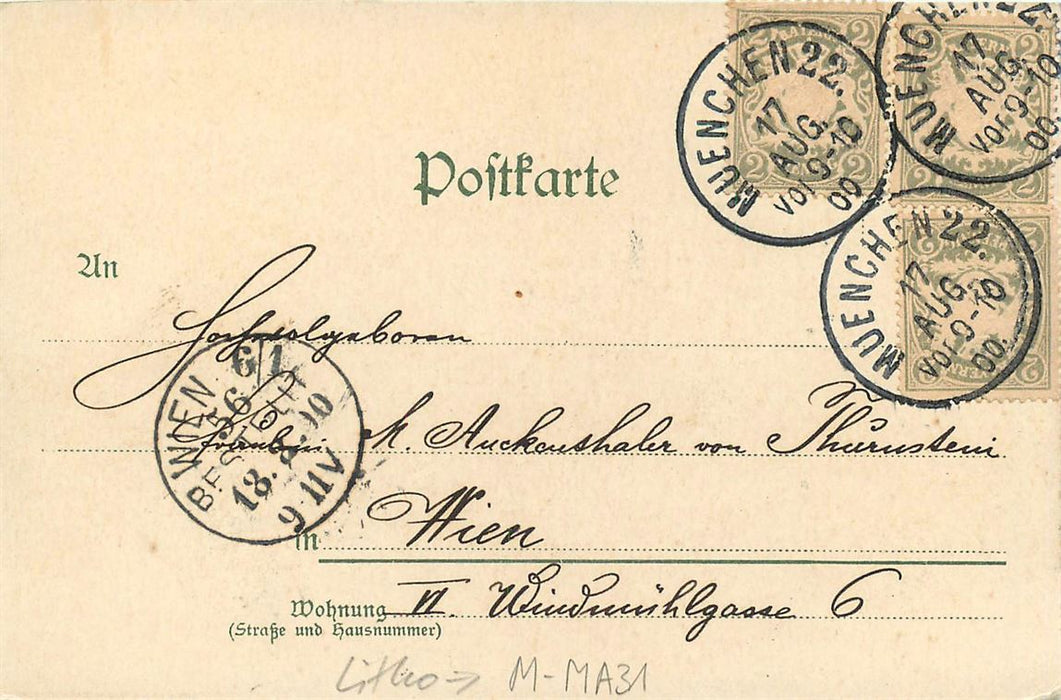 Postkarte
MUENCHEN 22.
17
AUG.
Vor. 9-10
00.
MUENCHEN 22.
17
AUG.
Vor. 9-10
00.
MUENCHEN 22.
17
AUG.
Vor. 9-10
00.
An
Hochwolgeboren
Fräulein M. Auckenthaler von Thurnstein
WIEN 6/1
BESTELLT
18. 8. 00
9 11V
in Wien
Wohnung VI. Windmühlgasse 6
(Straße und Hausnummer)
Litho → M-MA31